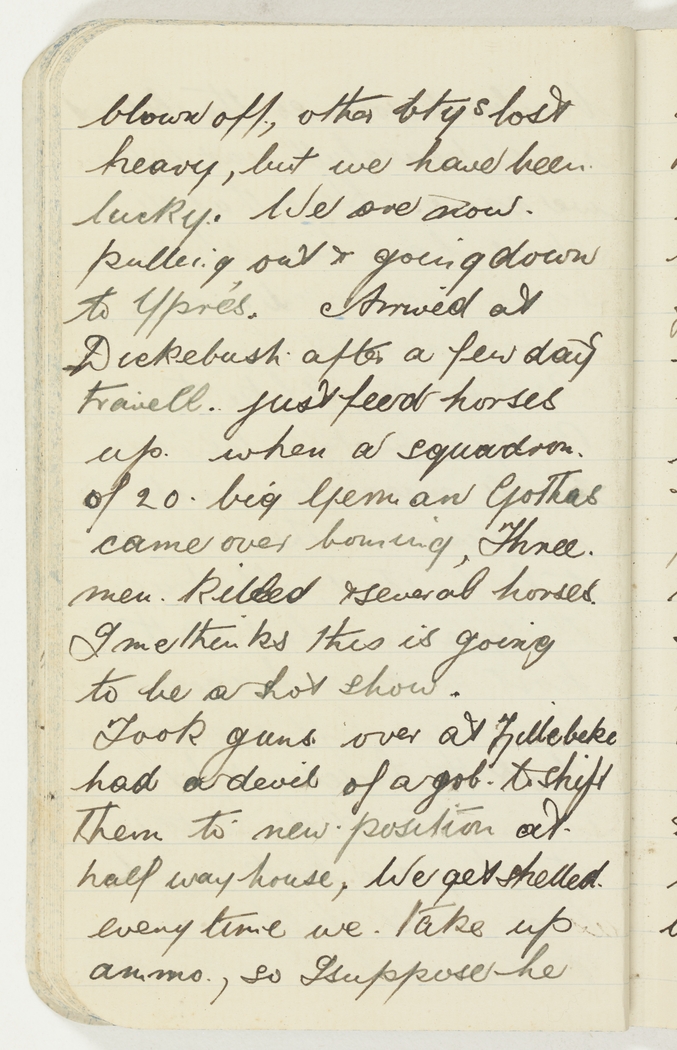 blown off, other btys lost
heavy, but we have been
lucky. We are now.
pulling out & going down
to Yprés. Arrived at
Dickebush after a few day
travell. just feed horses
up. when a squadron.
of 20. big German Gothas
came over boming, Three.
men. Killed & several horses.
I methinks this is going
to be a hot show.
Took guns over at Zillebeke
had a devil of a gob. to shift
them to new. position at.
half way house, We get shelled.
every time we. take up
ammo., so I suppose he